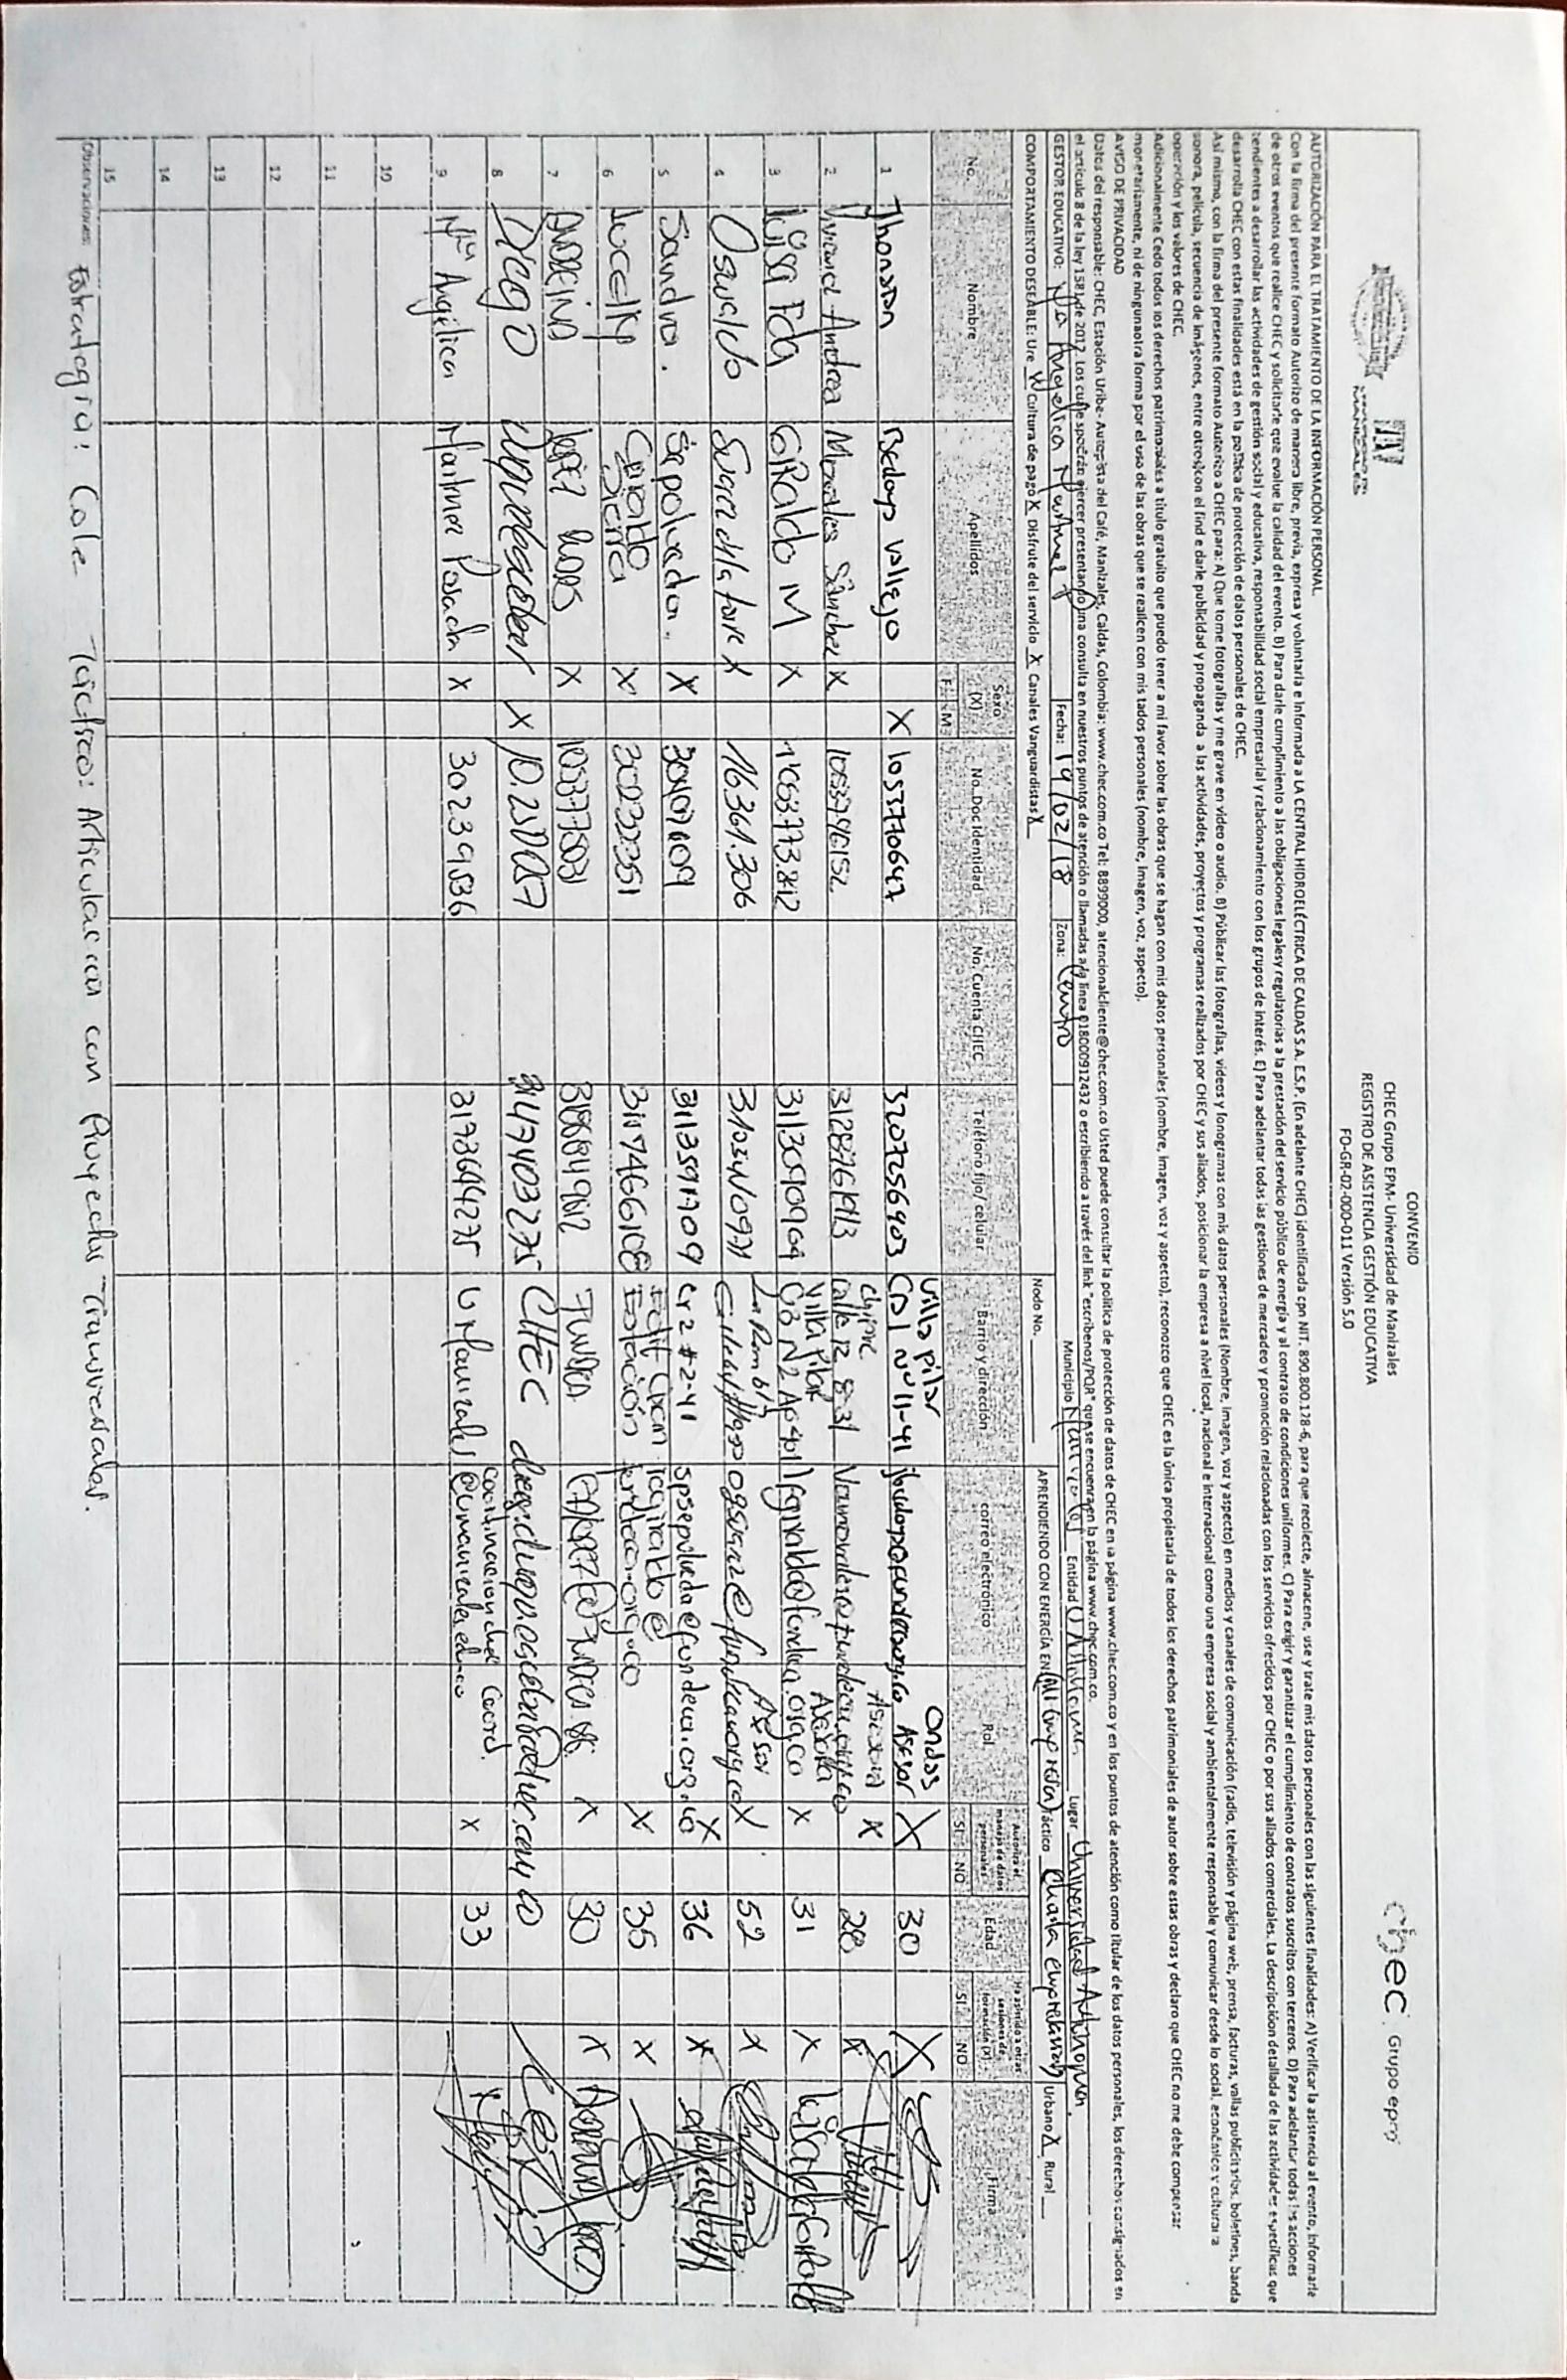 CONVENIO
CHEC Grupo EPM- Universidad de Manizales
REGISTRO DE ASISTENCIA GESTIÓN EDUCATIVA
FO-GR-02-000-011 Versión 5.0
UNIVERSIDAD DE MANIZALES
chec Grupo epm
AUTORIZACIÓN PARA EL TRATAMIENTO DE LA INFORMACIÓN PERSONAL
Con la firma del presente formato Autorizo de manera libre, previa, expresa y voluntaria e informada a LA CENTRAL HIDROELÉCTRICA DE CALDAS S.A. E.S.P. (En adelante CHEC) identificada con NIT. 890.800.128-6, para que recolecte, almacene, use y trate mis datos personales con las siguientes finalidades: A) Verificar la asistencia al evento, informarle
de otros eventos que realice CHEC y solicitarle que evalue la calidad del evento. B) Para darle cumplimiento a las obligaciones legales y regulatorias a la prestación del servicio público de energía y al contrato de condiciones uniformes. C) Para exigir y garantizar el cumplimiento de contratos suscritos con terceros. D) Para adelantar todas las acciones
tendientes a desarrollar las actividades de gestión social y educativa, responsabilidad social empresarial y relacionamiento con los grupos de interés. E) Para adelantar todas las gestiones de mercadeo y promoción relacionadas con los servicios ofrecidos por CHEC o por sus aliados comerciales. La descripcion detallada de las actividades específicas que
desarrolla CHEC con estas finalidades está en la política de protección de datos personales de CHEC.
Así mismo, con la firma del presente formato Autorizo a CHEC para: A) Que tome fotografías y me grave en video o audio. B) Públicar las fotografías, videos y fonogramas con mis datos personales (Nombre, imagen, voz y aspecto) en medios y canales de comunicación (radio, televisión y página web, prensa, facturas, vallas publicitarias, boletines, banda
sonora, película, secuencia de imágenes, entre otros) con el find e darle publicidad y propaganda a las actividades, proyectos y programas realizados por CHEC y sus aliados, posicionar la empresa a nivel local, nacional e internacional como una empresa social y ambientalemente responsable y comunicar desde lo social, económico y cultural la
operación y los valores de CHEC.
Adicionalmente Cedo todos los derechos patrimoniales a título gratuito que puedo tener a mi favor sobre las obras que se hagan con mis datos personales (nombre, imagen, voz y aspecto), reconozco que CHEC es la única propietaria de todos los derechos patrimoniales de autor sobre estas obras y declaro que CHEC no me debe compensar
monetariamente, ni de ningunaotra forma por el uso de las obras que se realicen con mis tados personales (nombre, imagen, voz, aspecto).
AVISO DE PRIVACIDAD
Datos del responsable: CHEC, Estación Uribe- Autopista del Café, Manizales, Caldas, Colombia: www.chec.com.co Tel: 8899000, atencionalcliente@chec.com.co Usted puede consultar la política de protección de datos de CHEC en la página www.chec.com.co y en los puntos de atención como titular de los datos personales, los derechos consignados en
el artículo 8 de la ley 1581 de 2012. Los cuale spodrán ejercer presentando una consulta en nuestros puntos de atención o llamadas a la línea 018000912432 o escribiendo a través del link "escribenos/PQR" que se encuentra en la página www.chec.com.co.
GESTOR EDUCATIVO: Ma Angelica Martinez P Fecha: 19/02/18 Zona: Centro Municipio Manizales Entidad U Autónoma Lugar Universidad Autónoma
COMPORTAMIENTO DESEABLE: Ure X Cultura de pago X Disfrute del servicio X Canales Vanguardistas X Nodo No. APRENDIENDO CON ENERGÍA EN Táctico Charla empresarial Urbano X Rural
No. Nombre Apellidos Sexo (X) F M No. Doc Identidad No. Cuenta CHEC Teléfono fijo/ celular Barrio y dirección correo electrónico Rol Autoriza el manejo de datos personales SI NO Edad Ha asistido a otras sesiones de formación (X) SI NO Firma
1 Jhonatan Bedoya Vallejo X 1053770647 3207256903 Villa Pilar Cll 1 Nº 11-41 Ondas Asesor X 30 X
2 Viviana Andrea Morales Sánchez X 1053796152 3128761913 Chipre Calle 12 8-31 Asesora X 28 X
3 Luisa Fda Giraldo M X 1'053773.842 3113090964 Villa Pilar lfgiraldo@fundeca.org.co Asesora X 31 X
4 Oswaldo X 16.361.306 La Rambla Asesor X 52 X
5 Sandra. Sepulveda. X 30404609 3113591709 Cr 2 # 2-41 spsepulveda@fundeca.org.co X 36 X
6 Lucelly Giraldo Sierra X 3117466108 Estación X 35 X
7 López X 1053775031 Fundeca X 30 X
8 Diego X 3147403275 CHEC
9 Ma Angélica Martínez Posada X 30239536 3173644275 U Manizales Coord. X 33 X
10
11
12
13
14
15
Observaciones: Estrategia: Cole Táctico: Articulación con Proyectos Transversales.